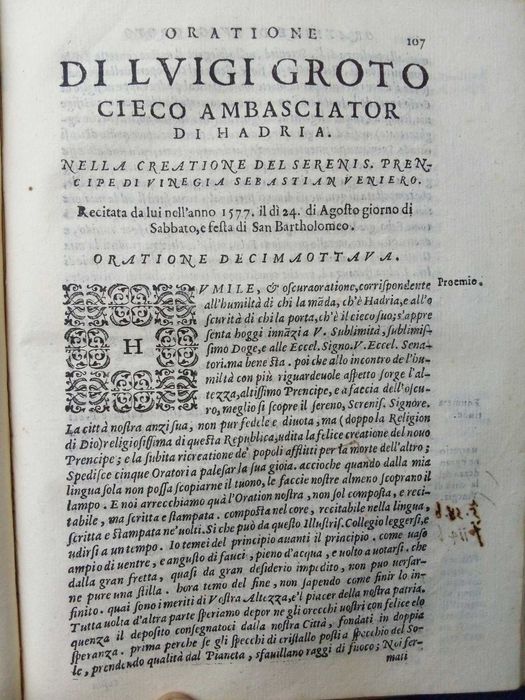 ORATIONE
107
DI LVIGI GROTO
CIECO AMBASCIATOR
DI HADRIA.
NELLA CREATIONE DEL SERENIS. PREN-
CIPE DI VINEGIA SEBASTIAN VENIERO.
Recitata da lui nell'anno 1577. il dì 24. di Agosto giorno di
Sabbato, e festa di San Bartholomeo.
ORATIONE DECIMAOTTAVA.
HVMILE, & oscura oratione, corrispondente
Proemio.
all'humiltà di chi la mãda, ch'è Hadria, e all'o
scurità di chi la porta, ch'è il cieco suo; s'appre
senta hoggi innãzi V. Sublimità, sublimis-
simo Doge, e alle Eccel. Signo. V. Eccel. Sena-
tori. ma bene sta. poi che allo incontro de l'hu-
miltà con più riguardeuole aspetto sorge l'al-
tezza, altissimo Prencipe, e a faccia dell'oscu-
ro, meglio si scopre il sereno, Sereniss. Signore.
La città nostra anzi sua, non pur fedele e diuota, ma (doppo la Religion
di Dio) religiosissima di questa Republica, udita la felice creatione del nouo
Prencipe; e la subita ricreatione de' popoli afflitti per la morte dell'altro;
Spedisce cinque Oratori a palesar la sua gioia. accioche quando dalla mia
lingua sola non possa scoppiarne il tuono, le faccie nostre almeno scoprano il
lampo. E noi arrecchiamo quà l'Oration nostra, non sol composta, e reci-
tabile, ma scritta e stampata. composta nel core, recitabile nella lingua,
scritta e stampata ne' uolti. Si che può da questo Illustriss. Collegio leggersi, e
udirsi a un tempo. Io temei del principio auanti il principio. come uaso
ampio di uentre, e angusto di fauci, pieno d'acqua, e uolto a uotarsi. che
dalla gran fretta, quasi da gran desiderio impedito, non può uersar-
ne pure una stilla. hora temo del fine, non sapendo come finir lo in-
finito. quai sono i meriti di Vostra Altezza, e'l piacer della nostra patria.
Tutta uolta d'altra parte speriamo depor ne gli orecchi uostri con felice elo
quenza il deposito consegnatoci dalla nostra Città, fondati in doppia
speranza. prima perche se gli specchi di cristallo posti a specchio del So-
le, prendendo qualità dal Pianeta, sfauillano raggi di fuoco; Noi fer-
mati